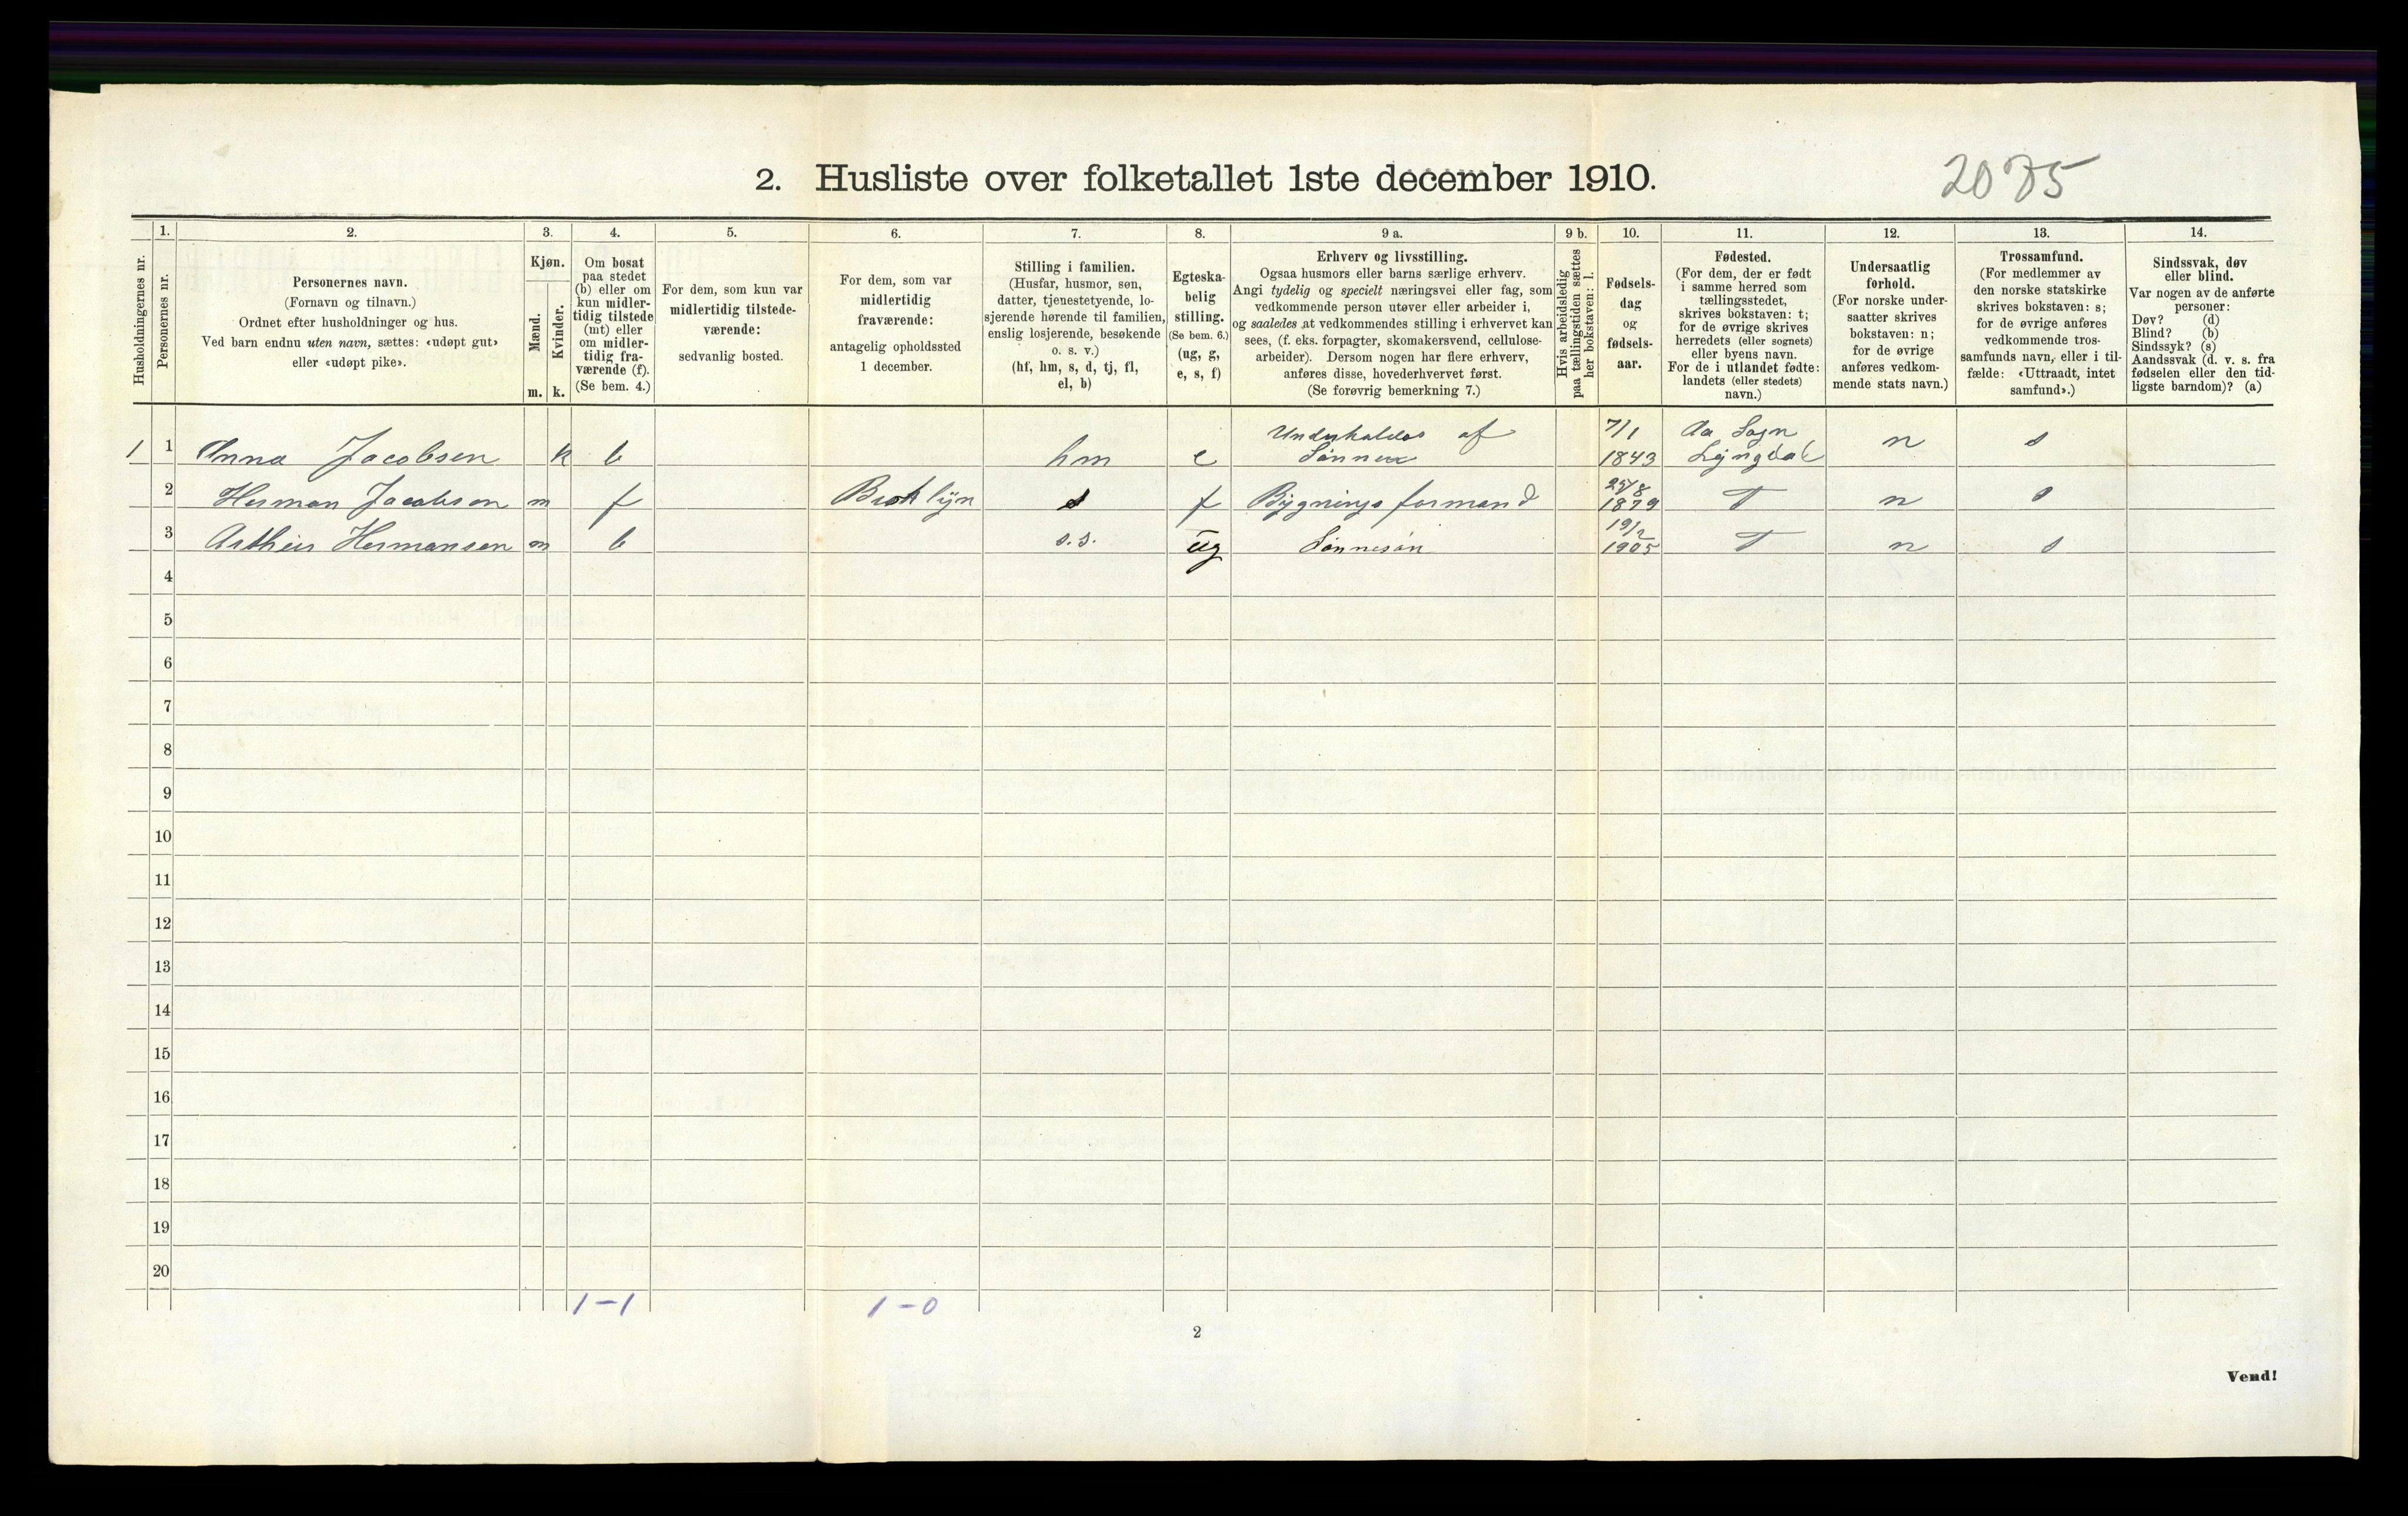 2. Husliste over folketallet 1ste december 1910.
2075
Husholdningernes nr.
1.
Personernes nr.
2.
Personernes navn.
(Fornavn og tilnavn.)
Ordnet efter husholdninger og hus.
Ved barn endnu uten navn, sættes: «udøpt gut»
eller «udøpt pike».
3.
Kjøn.
Mænd.
Kvinder.
m. k.
4.
Om bosat
paa stedet
(b) eller om
kun midler-
tidig tilstede
(mt) eller
om midler-
tidig fra-
værende (f).
(Se bem. 4.)
5.
For dem, som kun var
midlertidig tilstede-
værende:
sedvanlig bosted.
6.
For dem, som var
midlertidig
fraværende:
antagelig opholdssted
1 december.
7.
Stilling i familien.
(Husfar, husmor, søn,
datter, tjenestetyende, lo-
sjerende hørende til familien,
enslig losjerende, besøkende
o. s. v.)
(hf, hm, s, d, tj, fl,
el, b)
8.
Egteska-
belig
stilling.
(Se bem. 6.)
(ug, g,
e, s, f)
9 a.
Erhverv og livsstilling.
Ogsaa husmors eller barns særlige erhverv.
Angi tydelig og specielt næringsvei eller fag, som
vedkommende person utøver eller arbeider i,
og saaledes at vedkommendes stilling i erhvervet kan
sees, (f. eks. forpagter, skomakersvend, cellulose-
arbeider). Dersom nogen har flere erhverv,
anføres disse, hovederhvervet først.
(Se forøvrig bemerkning 7.)
9 b.
Hvis arbeidsledig
paa tællingstiden sættes
her bokstaven: l.
10.
Fødsels-
dag
og
fødsels-
aar.
11.
Fødested.
(For dem, der er født
i samme herred som
tællingsstedet,
skrives bokstaven: t;
for de øvrige skrives
herredets (eller sognets)
eller byens navn.
For de i utlandet fødte:
landets (eller stedets)
navn.)
12.
Undersaatlig
forhold.
(For norske under-
saatter skrives
bokstaven: n;
for de øvrige
anføres vedkom-
mende stats navn.)
13.
Trossamfund.
(For medlemmer av
den norske statskirke
skrives bokstaven: s;
for de øvrige anføres
vedkommende tros-
samfunds navn, eller i til-
fælde: «Uttraadt, intet
samfund».)
14.
Sindssvak, døv
eller blind.
Var nogen av de anførte
personer:
Døv? (d)
Blind? (b)
Sindssyk? (s)
Aandssvak (d. v. s. fra
fødselen eller den tid-
ligste barndom)? (a)
1 1 Anna Jacobsen k b hm e Underholdes af Sønner 7/1 1843 Aa Sogn Lyngdal n s
2 Herman Jacobsen m f Broklyn s f Bygnings formand 25/8 1879 T n s
3 Arthur Hermansen m b s.s. ug Sønnesøn 19/2 1905 T n s
4
5
6
7
8
9
10
11
12
13
14
15
16
17
18
19
20
1-1 1-0
2
Vend!